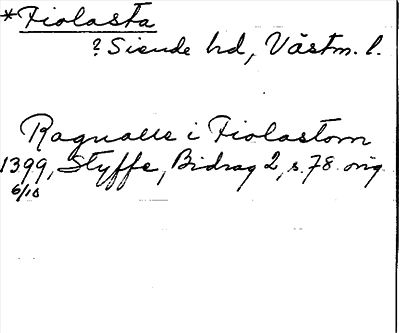 *Fiolasta
? Siende hd, Västm. l.
Ragualle i Fiolastom
1399, Styffe, Bidrag 2, s. 78. orig.
6/10